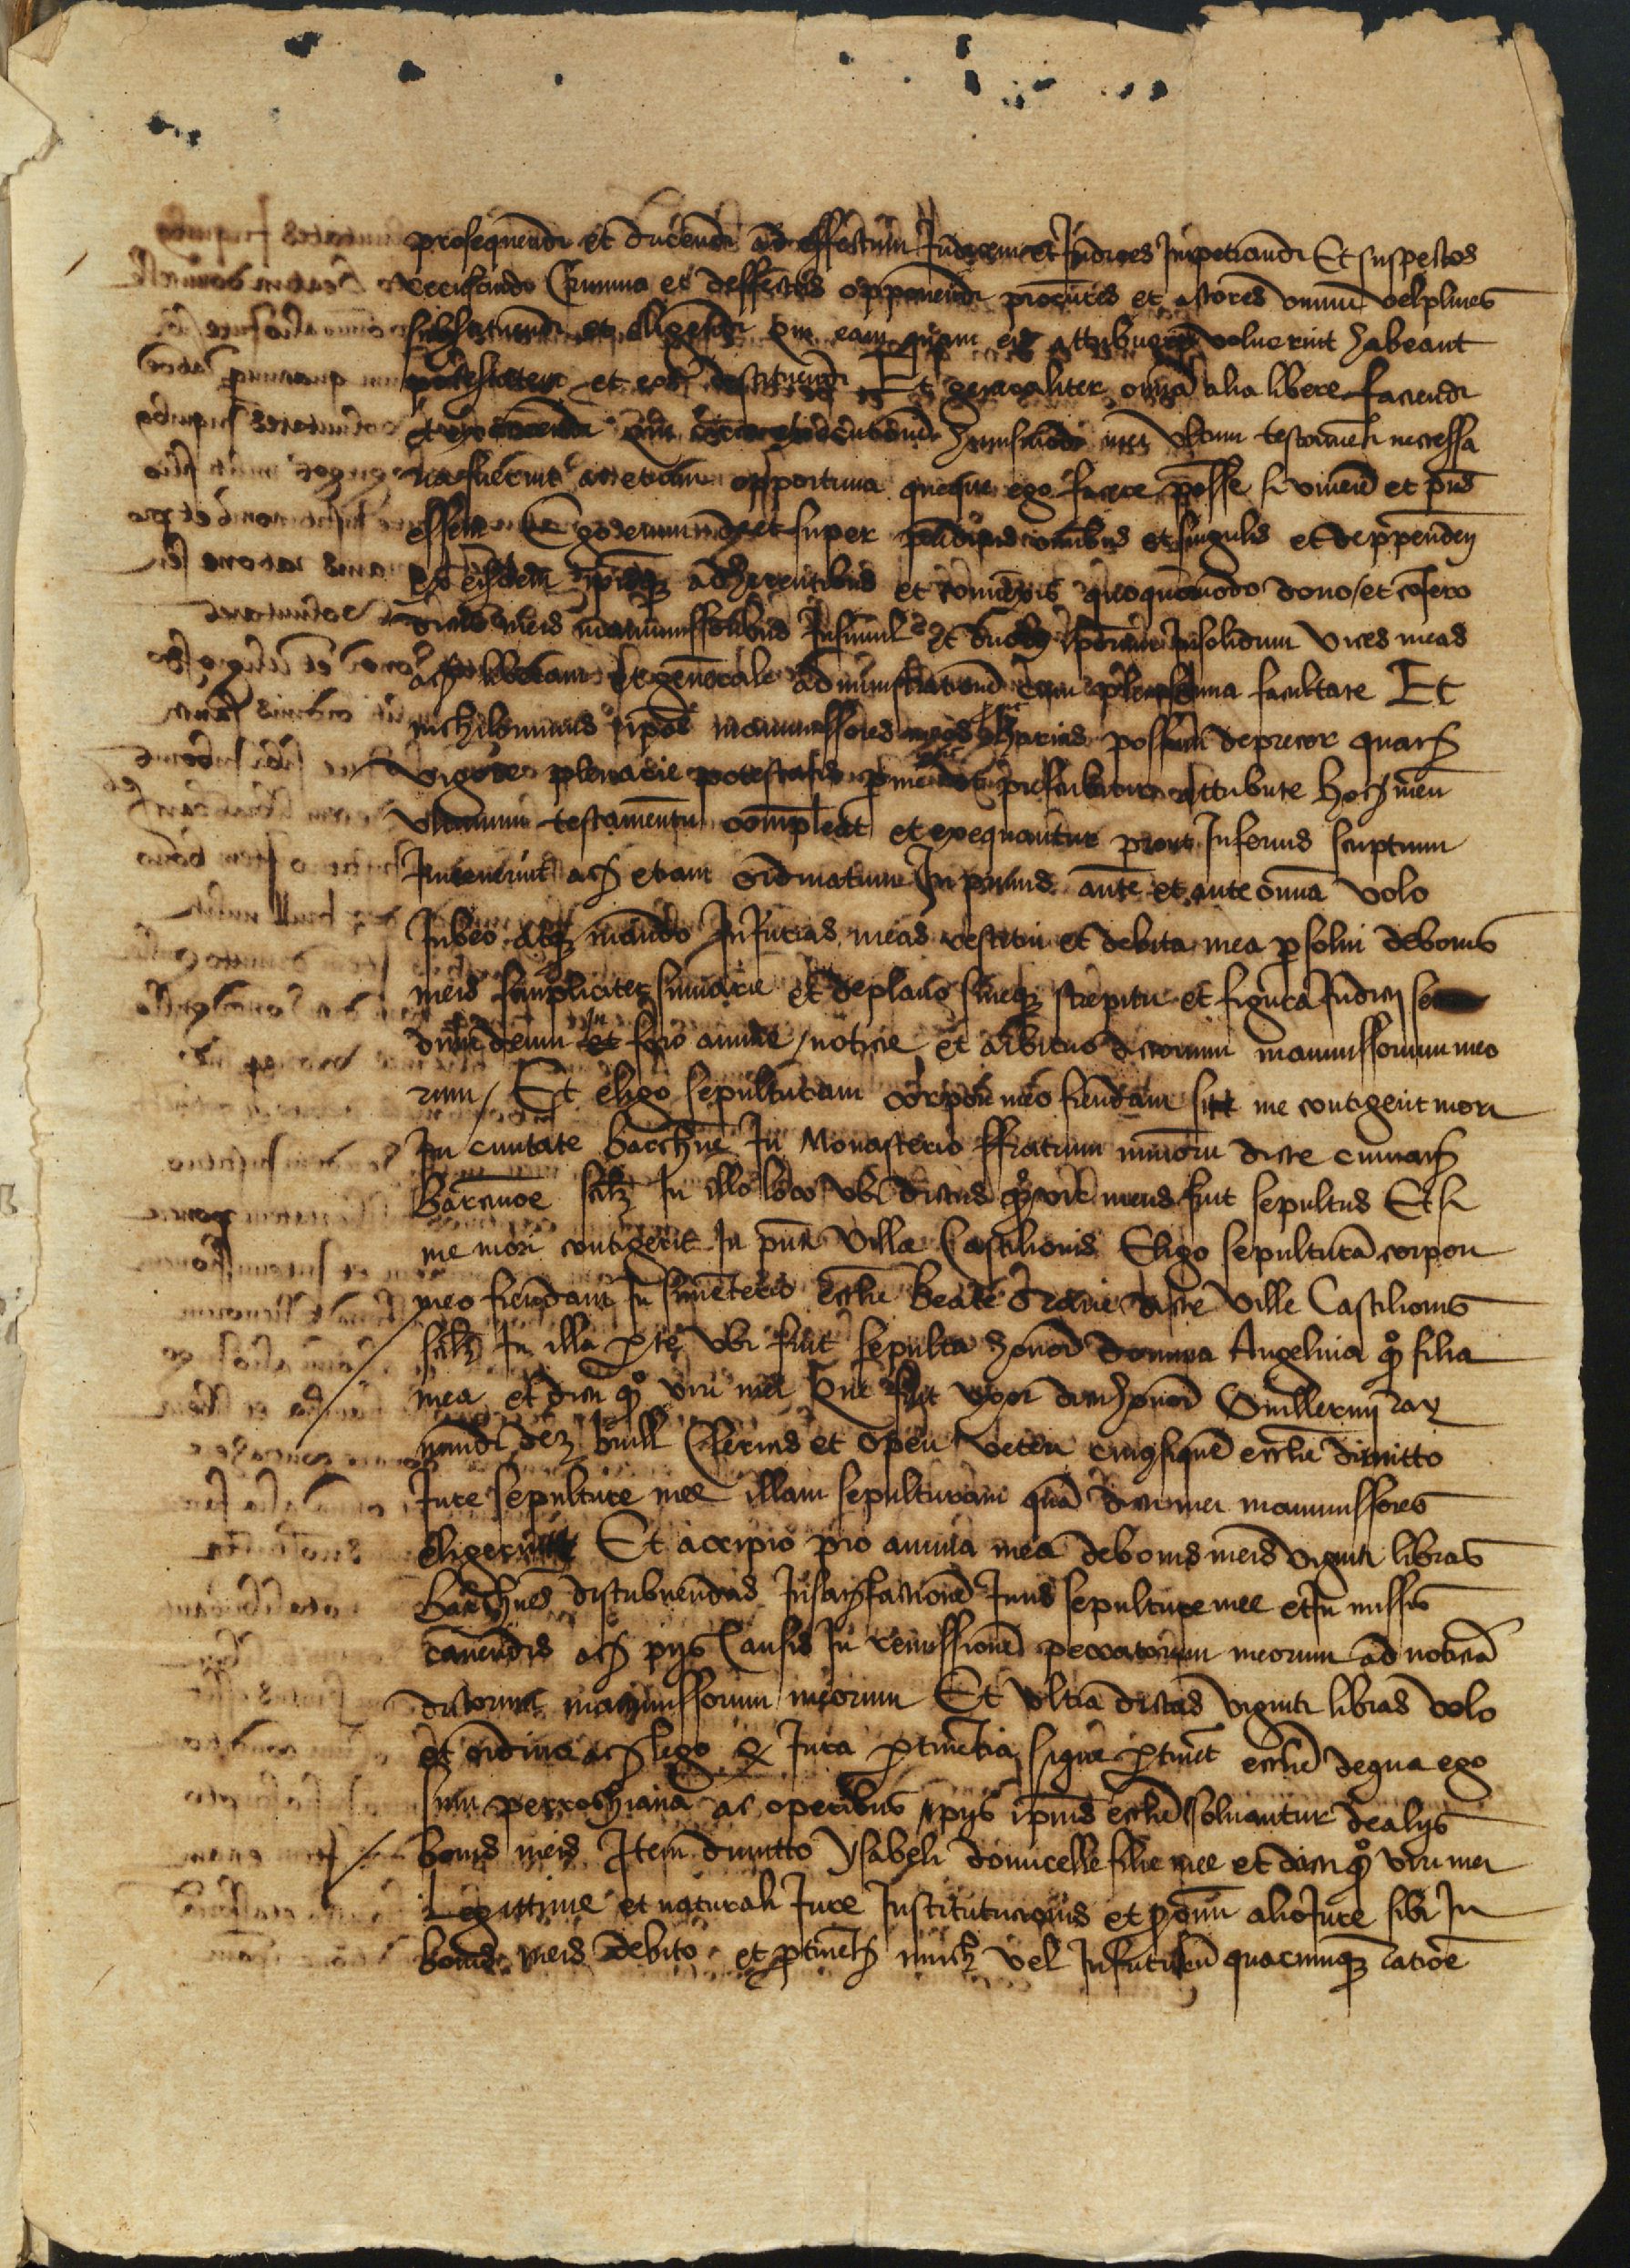 prosequendi et ducendi ad effectum Judicem et Judices Impetrandi Et suspectos
recusando Crimina et deffectus opponendi procures et actores unum vel plures
substituendi et eligendi qui eam quam eis attribuere voluerint habeant
potestatem et eos destituendi Et generaliter omia alia libere faciendi
et exercendi que circa exequcionem huiusmodi mei ultimi testamenti necessa
ria fuerint ac etiam opportuna queque ego facere posse si viverem et pns
essem Ego enim de et super predictis omibus et singulis et deppenden
ex eisdem ipisq adherentibus et connexis quoquomodo dono / et cofero
dictis meis manumissoribus Insimul et duobus ipsorum Insolidum vices meas
ac liberam et generale administrationem cum plenissima facultate Et
nichilominus ipos manumissores meos charius possum deprecor quat
vigore plenarie potestatis per me eis prescribitur attribute hoc meu
ultimum testamentum compleat et exequantur prout Inferius scriptum
Invenerint ac etiam ordinatum In primis ante et ante omnia volo
Jubeo atq mando Injurias meas restitui et debita mea persolvi de bonis
meis simpliciter sumarie et de plano sineq strepitu et figura Judicij se
dum deum et foro anime / noticie et arbitrio dictorum manumissorum meo
rum / Et eligo sepulturam corpori meo fiendam si me contigerit mori
In civitate barchne In Monasterio ffratrum minoru dicte civitat
barcinoe scilz In illo loco ubi dictus qo vir meus fuit sepultus Et si
me mori contigerit In pnti villa Castilionis Eligo sepulturā corpori
meo fiendam In simeterio ecclie beate Marie dicte ville Castilionis
scilz In illa pte ubi fuit sepulta honor domina Angelina qo filia
mea et dicti qo viri mei que fuit uxor dicti honor Guillermi ray
mundi dez brull Clericis et operi veteri cuiusque ecclie dimitto
Jure sepulture mee illam sepulturam quā dicti mei manumissores
eligerint Et accipio pro anima mea de bonis meis viginti libras
barchnes distribuendas In satisfactione Juris sepulture mee et In missis
canendis ac pijs Causis In remissione peccatorum meorum ad noticiā
dictorum manumissorum meorum Et ultra dictas viginti libras volo
et ordino ac lego q Jura ptinetia sique ptinet ecclie de qua ego
sum perrochiana ac operibus pijs ipius ecclie solvantur de alijs
bonis meis Item dimitto ysabeli domicelle filie mee et dicti qo viri mei
Legittime et naturali Jure Institucionis et p omi alio Jure sibi In
bonis meis debito et ptinet nunch vel In futurū quacumq ratioe